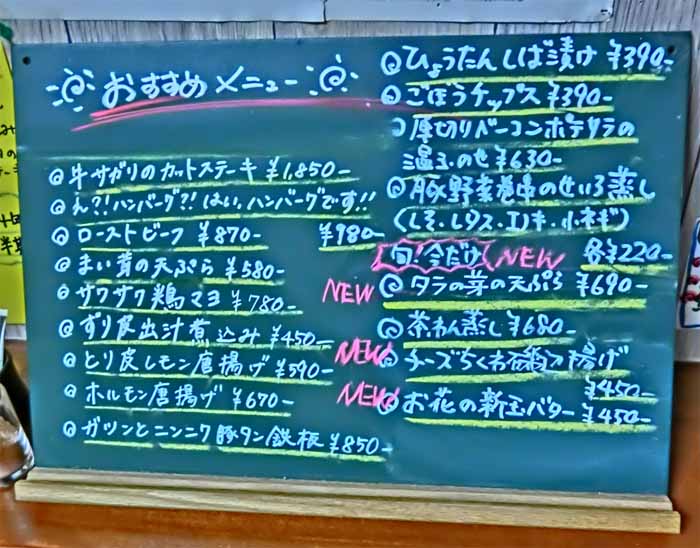 おすすめメニュー
◎牛サガリのカットステーキ ¥1,850-
◎え?!ハンバーグ?!はい、ハンバーグです!!
¥980-
◎ローストビーフ ¥870-
◎まい茸の天ぷら ¥580-
◎サワサワ鶏マヨ ¥780-
NEW
◎ずり皮出汁煮込み ¥450-
◎とり皮レモン唐揚げ ¥590-
◎ホルモン唐揚げ ¥670-
◎ガツンとニンニク豚タン鉄板 ¥850-
◎ひょうたんしば漬け ¥390-
◎ごぼうチップス ¥390-
◎厚切りベーコンポテサラの
温玉のせ ¥630-
◎豚野菜巻串のせいろ蒸し
(しそ・レタス・エノキ・小ネギ)
各¥220-
旬!今だけ NEW
◎タラの芽の天ぷら ¥690-
◎茶わん蒸し ¥680-
NEW
◎チーズちくわ磯部揚げ
¥450-
NEW
◎お花の新玉バター ¥450-